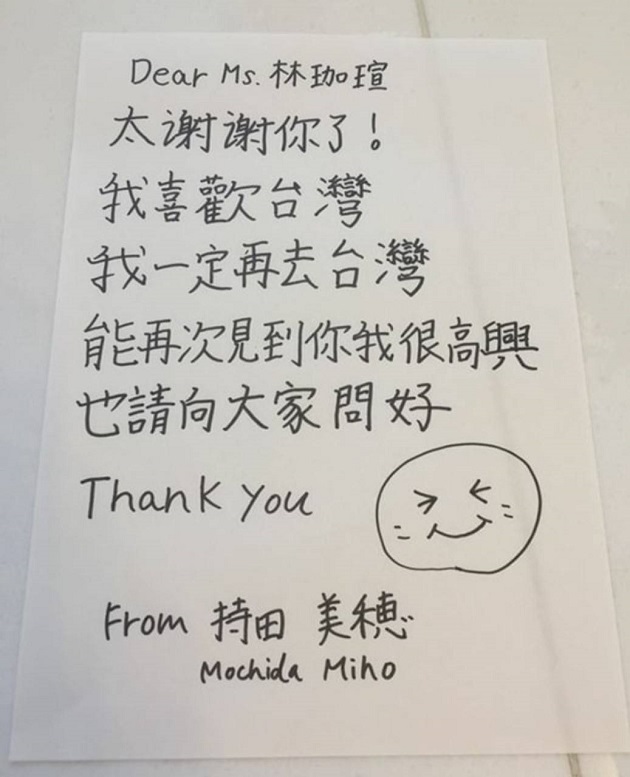 Dear Ms. 林珈瑄
太謝謝你了！
我喜歡台灣
我一定再去台灣
能再次見到你我很高興
也請向大家問好
Thank you
From 持田 美穂
Mochida Miho